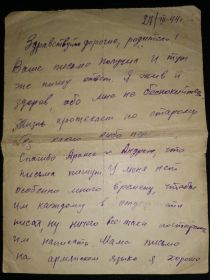 27/III-44г.
Здравствуйте дорогие, родители!
Ваше письмо получил и тут
же пишу ответ. Я жив и
здоров, обо мне не беспокойтесь
Жизнь протекает по старому
без каких либо
Спасибо Андрею что
письма пишут у меня нет
особенно много времени, чтобы
им каждому в
писать ну ничего все-таки постараюсь
им написать Мама письмо
на армянском языке я хорошо